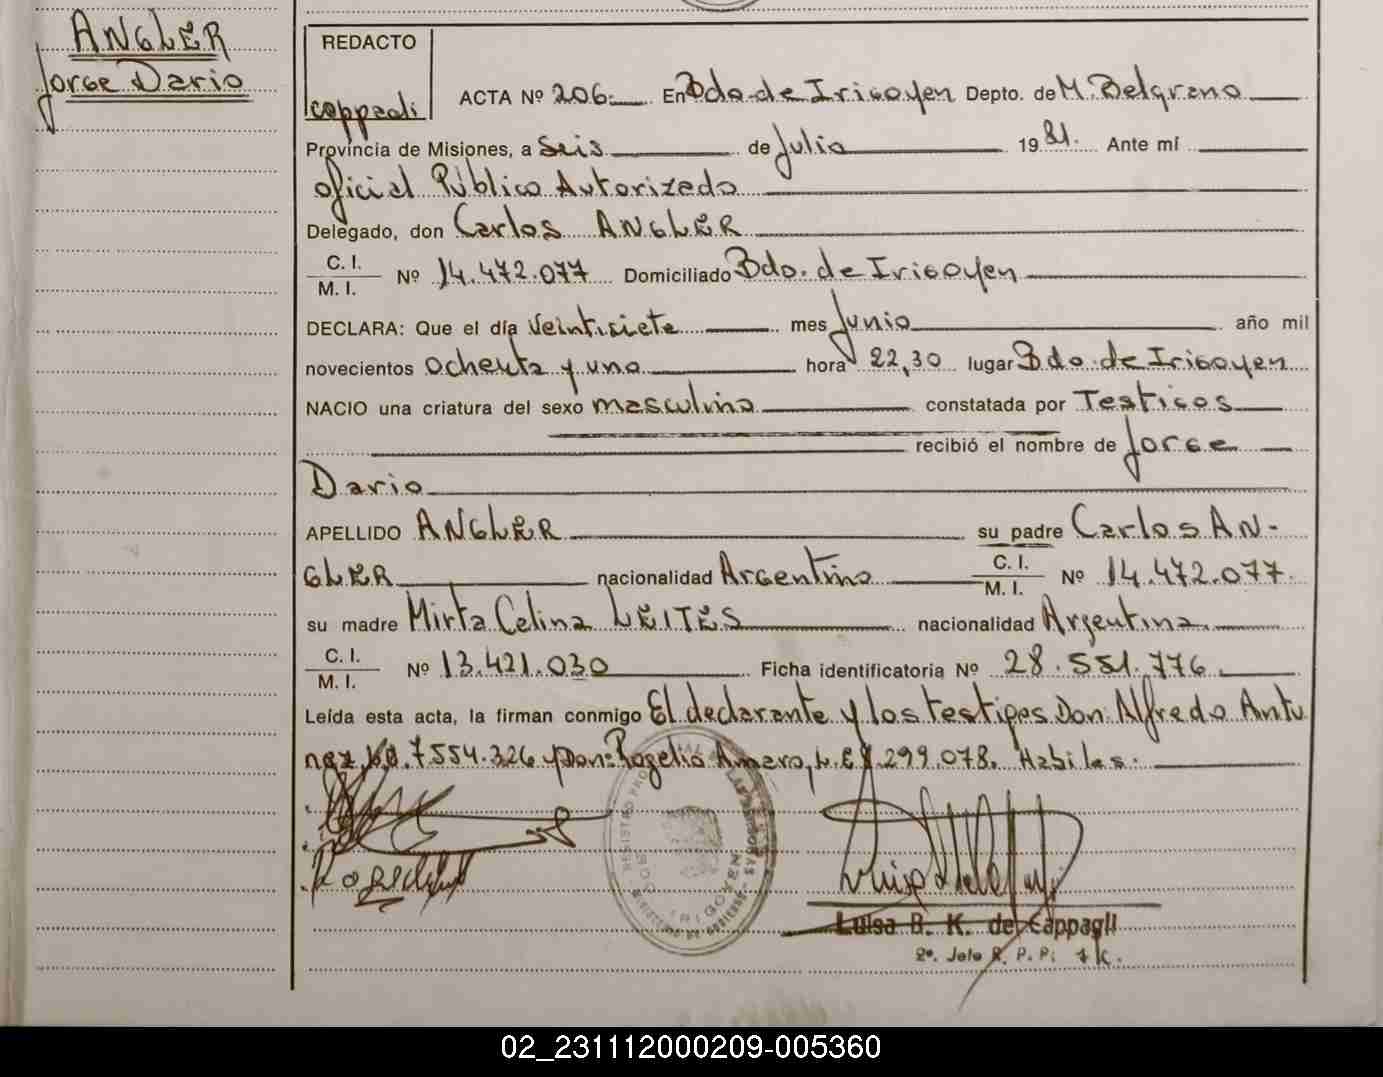 ANGLER
Jorge Dario
REDACTO
Cappagli
ACTA Nº 206.- En Bdo. de Irigoyen Depto. de M. Belgrano
Provincia de Misiones, a Seis de Julio 1981. Ante mí
oficial Público Autorizado
Delegado, don Carlos ANGLER
C. I.
M. I. Nº 14.472.077 Domiciliado Bdo. de Irigoyen
DECLARA: Que el día Veintisiete mes Junio año mil
novecientos Ochenta y uno hora 22,30 lugar Bdo. de Irigoyen
NACIO una criatura del sexo masculino constatada por Testigos
recibió el nombre de Jorge
Dario
APELLIDO ANGLER su padre Carlos AN-
GLER nacionalidad Argentino C. I.
M. I. Nº 14.472.077.
su madre Mirta Celina LEITES nacionalidad Argentina.
C. I.
M. I. Nº 13.421.030 Ficha identificatoria Nº 28.551.776
Leída esta acta, la firman conmigo El declarante y los testigos Don Alfredo Antu
nez 7.554.326 y Don: Rogelio Amaro, L.E. 299.078. Habiles.
Luisa B. K. de Cappagli
2º. Jefe R. P. P.
IRIGOYEN
02_231112000209-005360